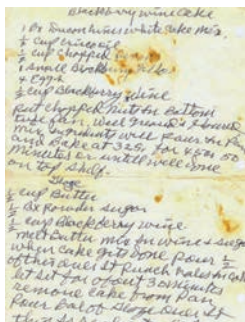 Blackberry Wine Cake
1 Bx Duncan Hines white cake mix
½ cup crisco oil
½ cup chopped
1 small
4 Eggs
½ cup Blackberry Wine
Put chopped nuts in Bottom
tube pan, well Greased & floured
mix ingredients well pour in Pan
and Bake at 325, for 45 or 50
minutes or until well done
on top shelf.
Glaze
½ cup Butter
½ Bx Powder sugar
½ cup Blackberry wine
melt butter mix in wine & sugar
when cake gets done pour ½
of this over it Punch holes in cake
let set for about 30 minutes
remove cake from Pan
Pour bal of glaze over it